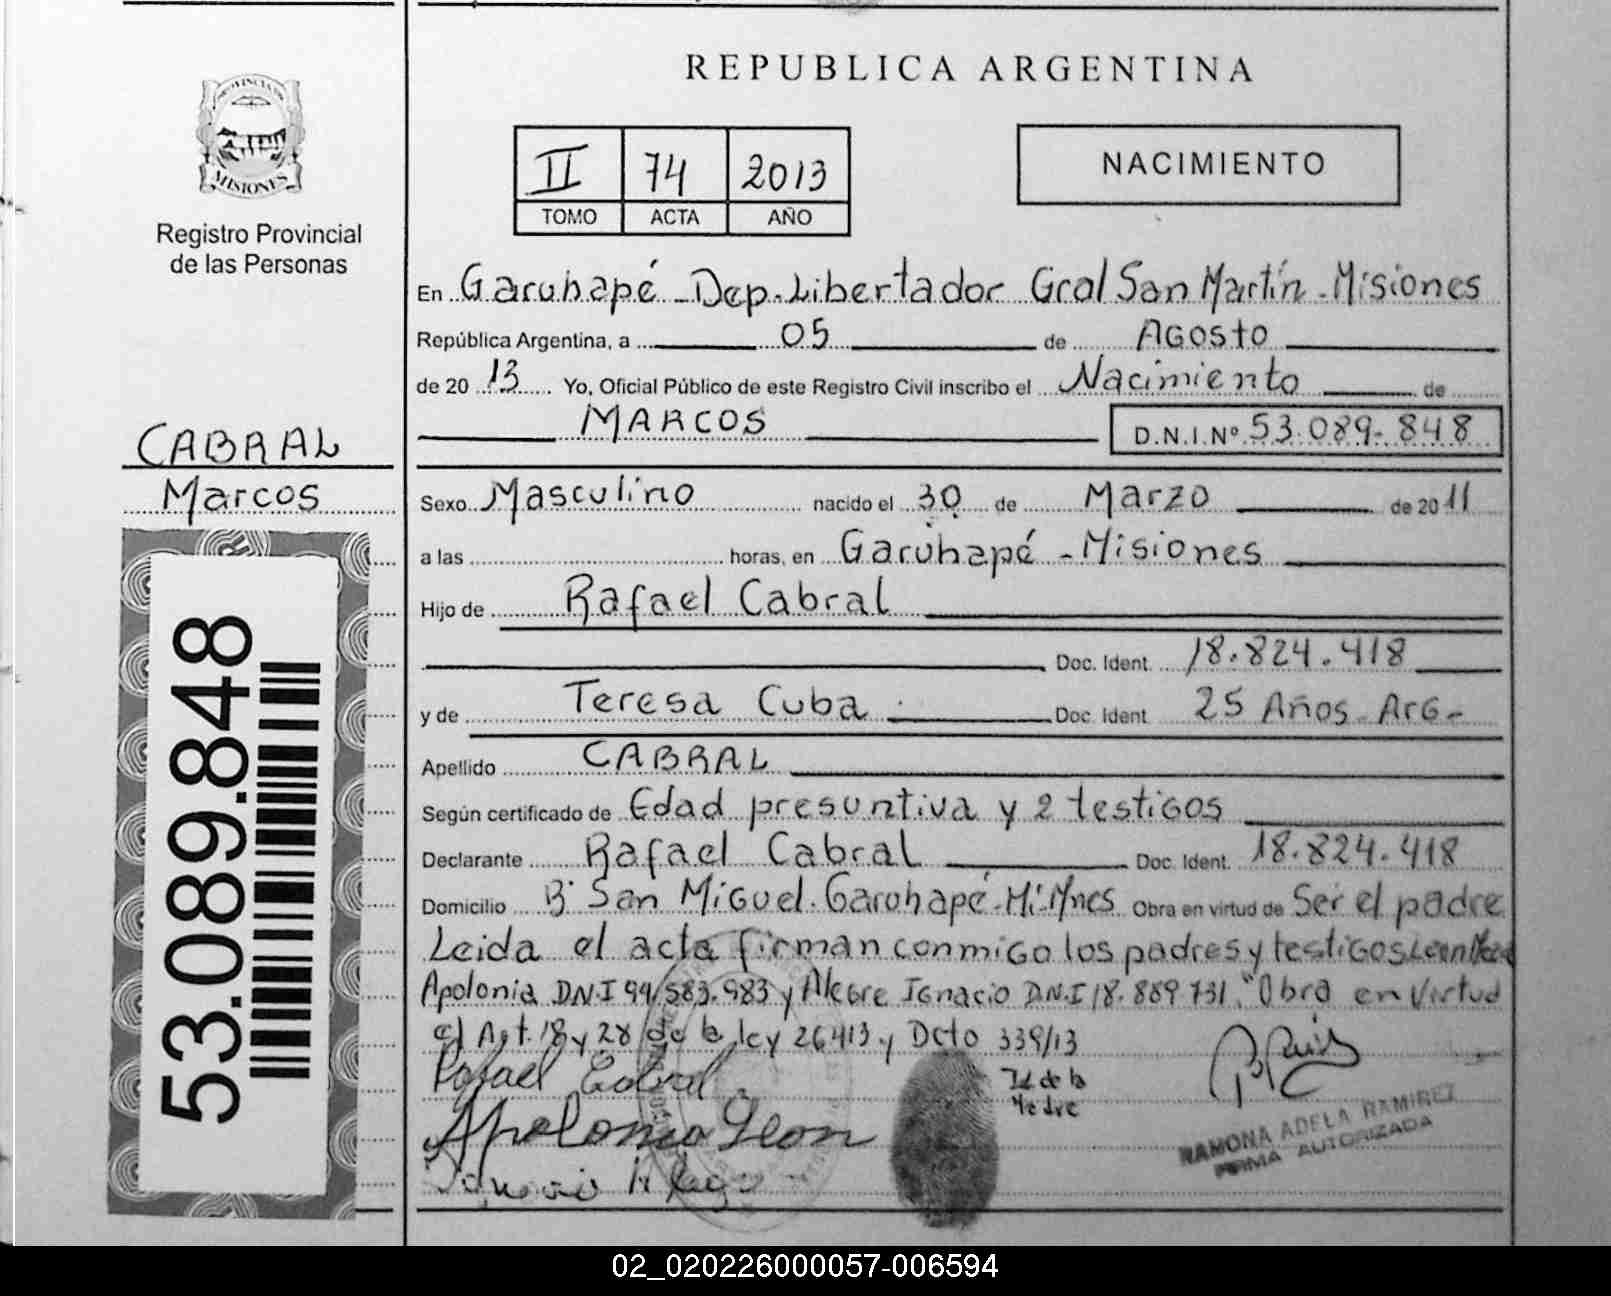 REPUBLICA ARGENTINA
PROVINCIA DE
MISIONES
Registro Provincial
de las Personas
II 74 2013
TOMO ACTA AÑO
NACIMIENTO
En Garuhapé - Dep. Libertador Gral San Martín - Misiones
República Argentina, a 05 de Agosto
de 2013 Yo, Oficial Público de este Registro Civil inscribo el Nacimiento de
MARCOS D.N.I.Nº 53.089.848
CABRAL
Marcos
Sexo Masculino nacido el 30 de Marzo de 2011
a las horas, en Garuhapé - Misiones
Hijo de Rafael Cabral
Doc. Ident. 18.824.418
y de Teresa Cuba Doc. Ident. 25 Años Arg-
Apellido CABRAL
Según certificado de Edad presuntiva y 2 testigos
Declarante Rafael Cabral Doc. Ident. 18.824.418
Domicilio Bº San Miguel. Garuhapé - Obra en virtud de Ser el padre
Leida el acta firman conmigo los padres y testigos Leon
Apolonia D.N.I y Alegre Ignacio D.N.I 18.889.731. "Obra en Virtud
Art. 18 y 28 de la ley 26413 y Dcto 339/13
Rafael Cabral
de la
Madre
Apolonia Leon
RAMONA ADELA RAMIREZ
FIRMA AUTORIZADA
53.089.848
02_020226000057-006594